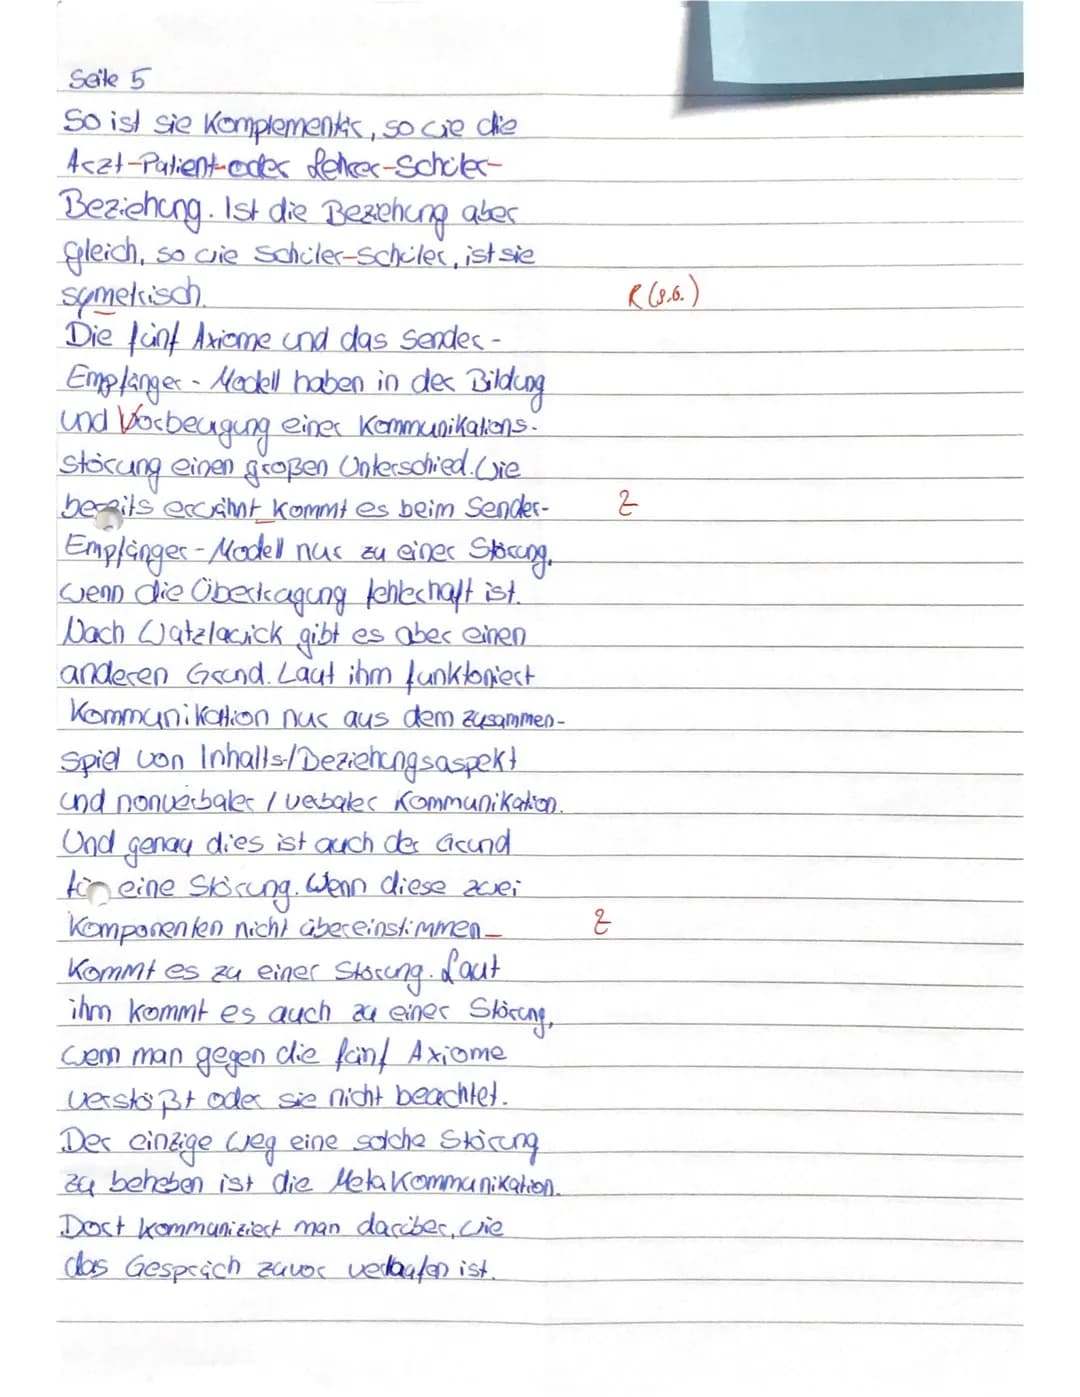 Seite 5
So ist sie Komplementär, so wie die
Arzt-Patient-oder Lehrer-Schüler-
Beziehung. Ist die Beziehung aber
gleich, so wie Schüler-Schüler, ist sie
symetrisch. R (s.o.)
Die fünf Axiome und das Sender-
Empfänger-Modell haben in der Bildung
und Vorbeugung einer Kommunikations-
störung einen großen Unterschied. Wie
bereits erwähnt kommt es beim Sender- Z
Empfänger-Modell nur zu einer Störung,
wenn die Übertragung fehlerhaft ist.
Nach Watzlawick gibt es aber einen
anderen Grund. Laut ihm funktoniert
Kommunikation nur aus dem zusammen-
spiel von Inhalts-/Beziehungsaspekt
und nonverbaler / verbaler Kommunikation.
Und genau dies ist auch der Grund
für eine Störung. Wenn diese zwei
Komponenten nicht übereinstimmen Z
kommt es zu einer Störung. Laut
ihm kommt es auch zu einer Störung,
wenn man gegen die fünf Axiome
verstößt oder sie nicht beachtet.
Der einzige Weg eine solche Störung
zu beheben ist die Metakommunikation.
Dort kommuniziert man darüber, wie
das Gespräch zuvor verlaufen ist.